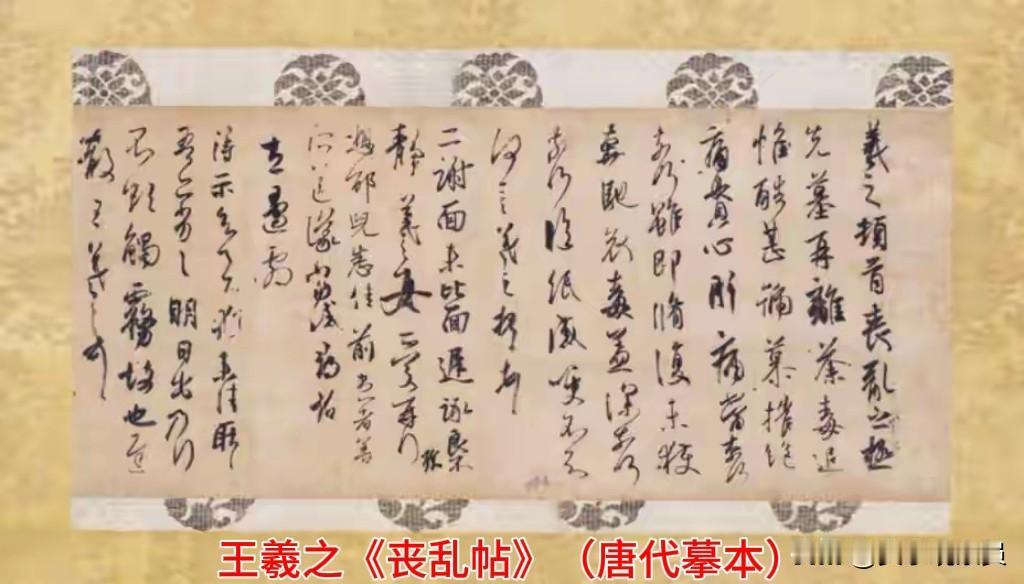 羲之頓首喪亂之極
先墓再離荼毒追
惟酷甚號慕摧絕
痛貫心肝痛當奈何
奈何雖即脩復未獲
奔馳哀毒益深奈何
奈何臨紙感哽不知
何言羲之頓首頓首
二謝面未比面遲詠良
靜羲之女愛再拜
想邰兒悉佳前患者善
所送議當試尋省
左邊劇
得示知足下猶未佳耿耿
吾亦劣劣明日出乃行
不欲觸霧故也遲
散王羲之頓首
王羲之《丧乱帖》（唐代摹本）